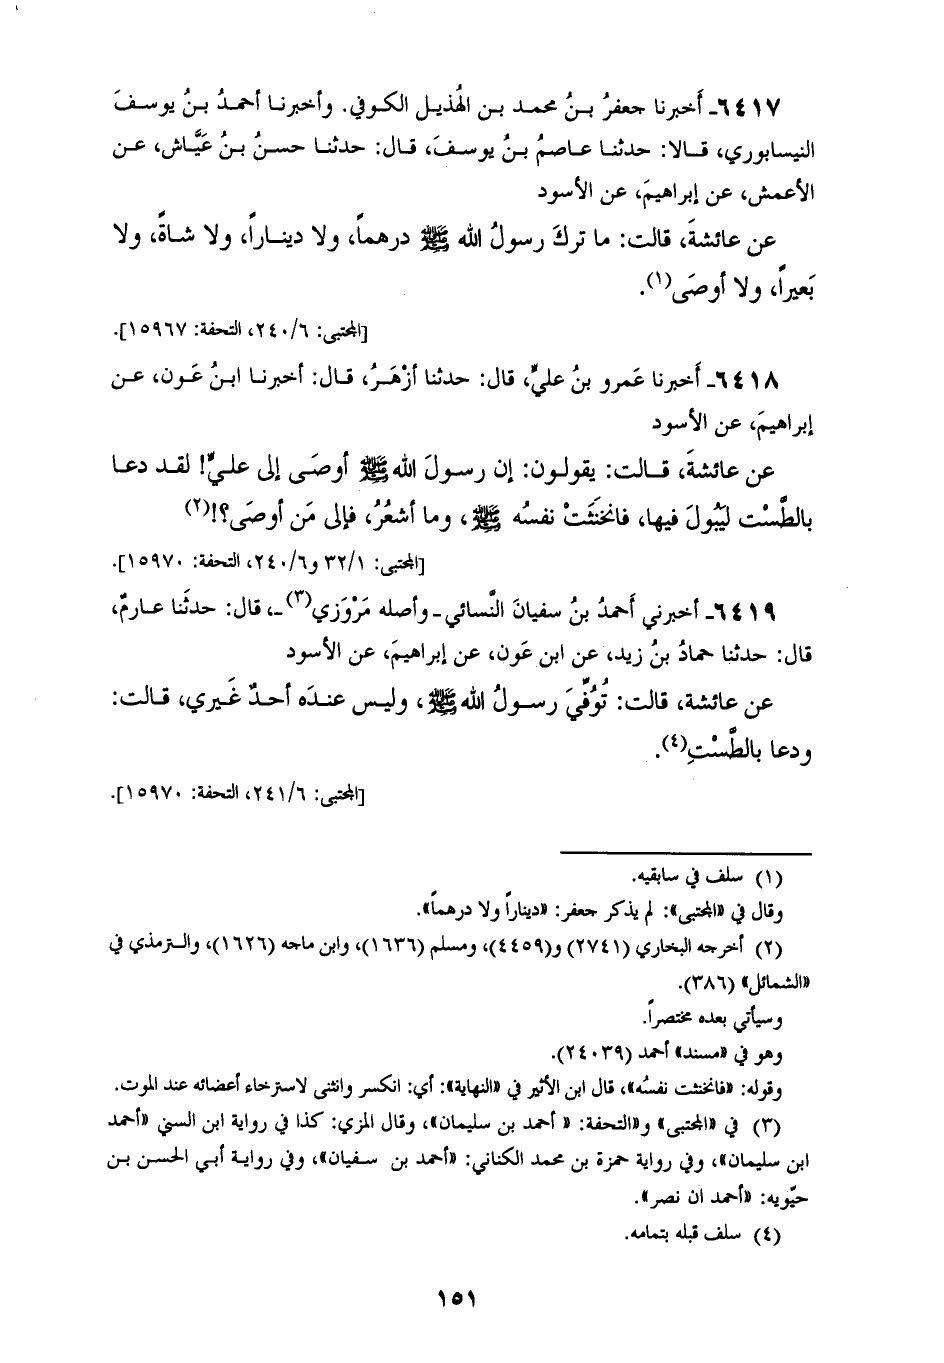 ٦٤١٧ـ أَخبرنا جعفرُ بنُ محمد بن الهُذيل الكوفي. وأخبرنا أحمدُ بنُ يوسفَ
النيسابوري، قالا: حدثنا عاصمُ بنُ يوسفَ، قال: حدثنا حسنُ بنُ عَيَّاش، عن
الأعمش، عن إبراهيمَ، عن الأسود
عن عائشةَ، قالت: ما تركَ رسولُ الله ﷺ درهماً، ولا ديناراً، ولا شاةً، ولا
بَعيراً، ولا أوصَى(١).
[المجتبى: ٢٤٠/٦، التحفة: ١٥٩٦٧].
٦٤١٨ـ أَخبرنا عَمرو بنُ عليٍّ، قال: حدثنا أزْهَرُ، قال: أخبرنا ابنُ عَون، عن
إبراهيمَ، عن الأسود
عن عائشةَ، قالت: يقولون: إن رسولَ الله ﷺ أوصَى إلى عليٍّ! لقد دعا
بالطَّسْت ليَبُولَ فيها، فانخَنَثَتْ نفسُه ﷺ، وما أشعُرُ، فإلى مَن أوصَى؟!(٢)
[المجتبى: ٣٢/١ و٢٤٠/٦، التحفة: ١٥٩٧٠].
٦٤١٩ـ أخبرني أَحمدُ بنُ سفيانَ النَّسائي ـ وأصله مَرْوَزي(٣) ـ، قال: حدثَنا عارمٌ،
قال: حدثنا حمادُ بنُ زيد، عن ابن عَون، عن إبراهيمَ، عن الأسود
عن عائشة، قالت: تُوُفِّيَ رسولُ الله ﷺ، وليس عندَه أحدٌ غَيري، قالت:
ودعا بالطَّسْتِ(٤).
[المجتبى: ٢٤١/٦، التحفة: ١٥٩٧٠].
(١) سلف في سابقيه.
وقال في «المجتبى»: لم يذكر جعفر: «ديناراً ولا درهماً».
(٢) أخرجه البخاري (٢٧٤١) و(٤٤٥٩)، ومسلم (١٦٣٦)، وابن ماجه (١٦٢٦)، والترمذي في
«الشمائل» (٣٨٦).
وسيأتي بعده مختصراً.
وهو في «مسند» أحمد (٢٤٠٣٩).
وقوله: «فانخنثت نفسُه»، قال ابن الأثير في «النهاية»: أي: انكسر وانثنى لاسترخاء أعضائه عند الموت.
(٣) في «المجتبى» و«التحفة: « أحمد بن سليمان»، وقال المزي: كذا في رواية ابن السني «أحمد
ابن سليمان»، وفي رواية حمزة بن محمد الكناني: «أحمد بن سفيان»، وفي رواية أبي الحسن بن
حيّويه: «أحمد ان نصر».
(٤) سلف قبله بتمامه.
١٥١